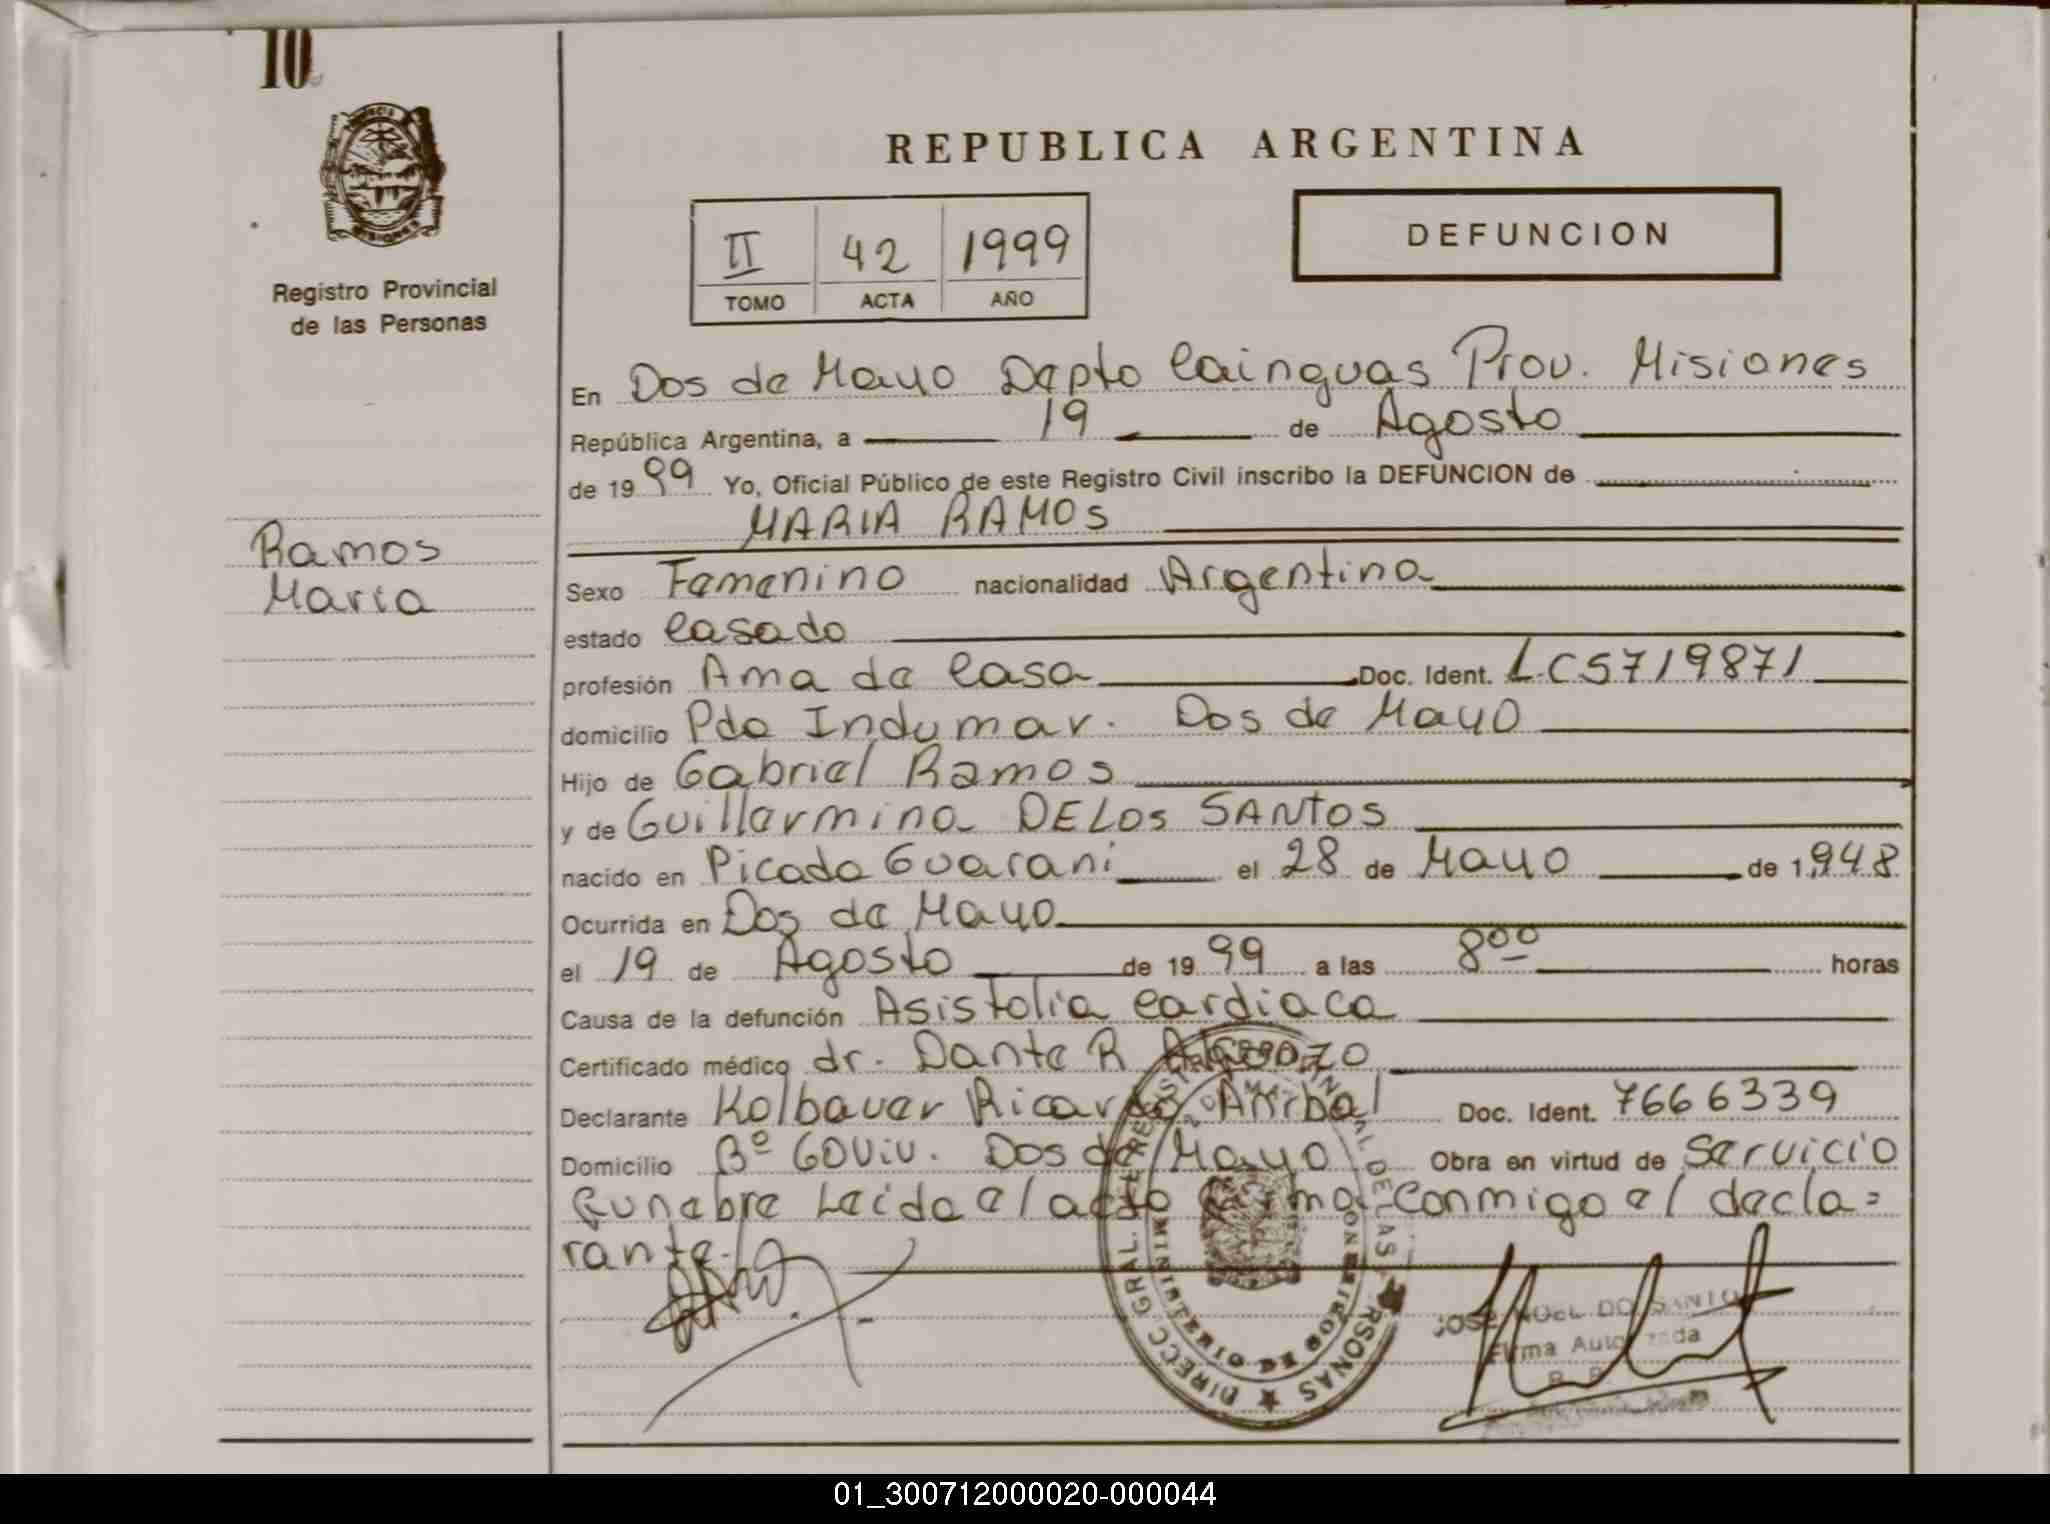 10
Registro Provincial
de las Personas
REPUBLICA ARGENTINA
II 42 1999
TOMO ACTA AÑO
DEFUNCION
En Dos de Mayo Depto Cainguas Prov. Misiones
República Argentina, a 19 de Agosto
de 1999 Yo, Oficial Público de este Registro Civil inscribo la DEFUNCION de
MARIA RAMOS
Ramos
Maria
Sexo Femenino nacionalidad Argentina
estado Casado
profesión Ama de Casa Doc. Ident. LC5719871
domicilio Pdo Indumar. Dos de Mayo
Hijo de Gabriel Ramos
y de Guillermina DELOS SANTOS
nacido en Picada Guarani el 28 de Mayo de 1.948
Ocurrida en Dos de Mayo
el 19 de Agosto de 1999 a las 8°° horas
Causa de la defunción Asistolia Cardiaca
Certificado médico dr. Dante R
Declarante Kolbauer Ricardo Anibal Doc. Ident. 7666339
Domicilio Bº 60Viv. Dos de Mayo Obra en virtud de Servicio
Funebre Leida el acta firma Conmigo el decla=
rante.
DIRECC. GRAL. DE REGISTRO PROVINCIAL DE LAS PERSONAS
Firma Autorizada
01_300712000020-000044